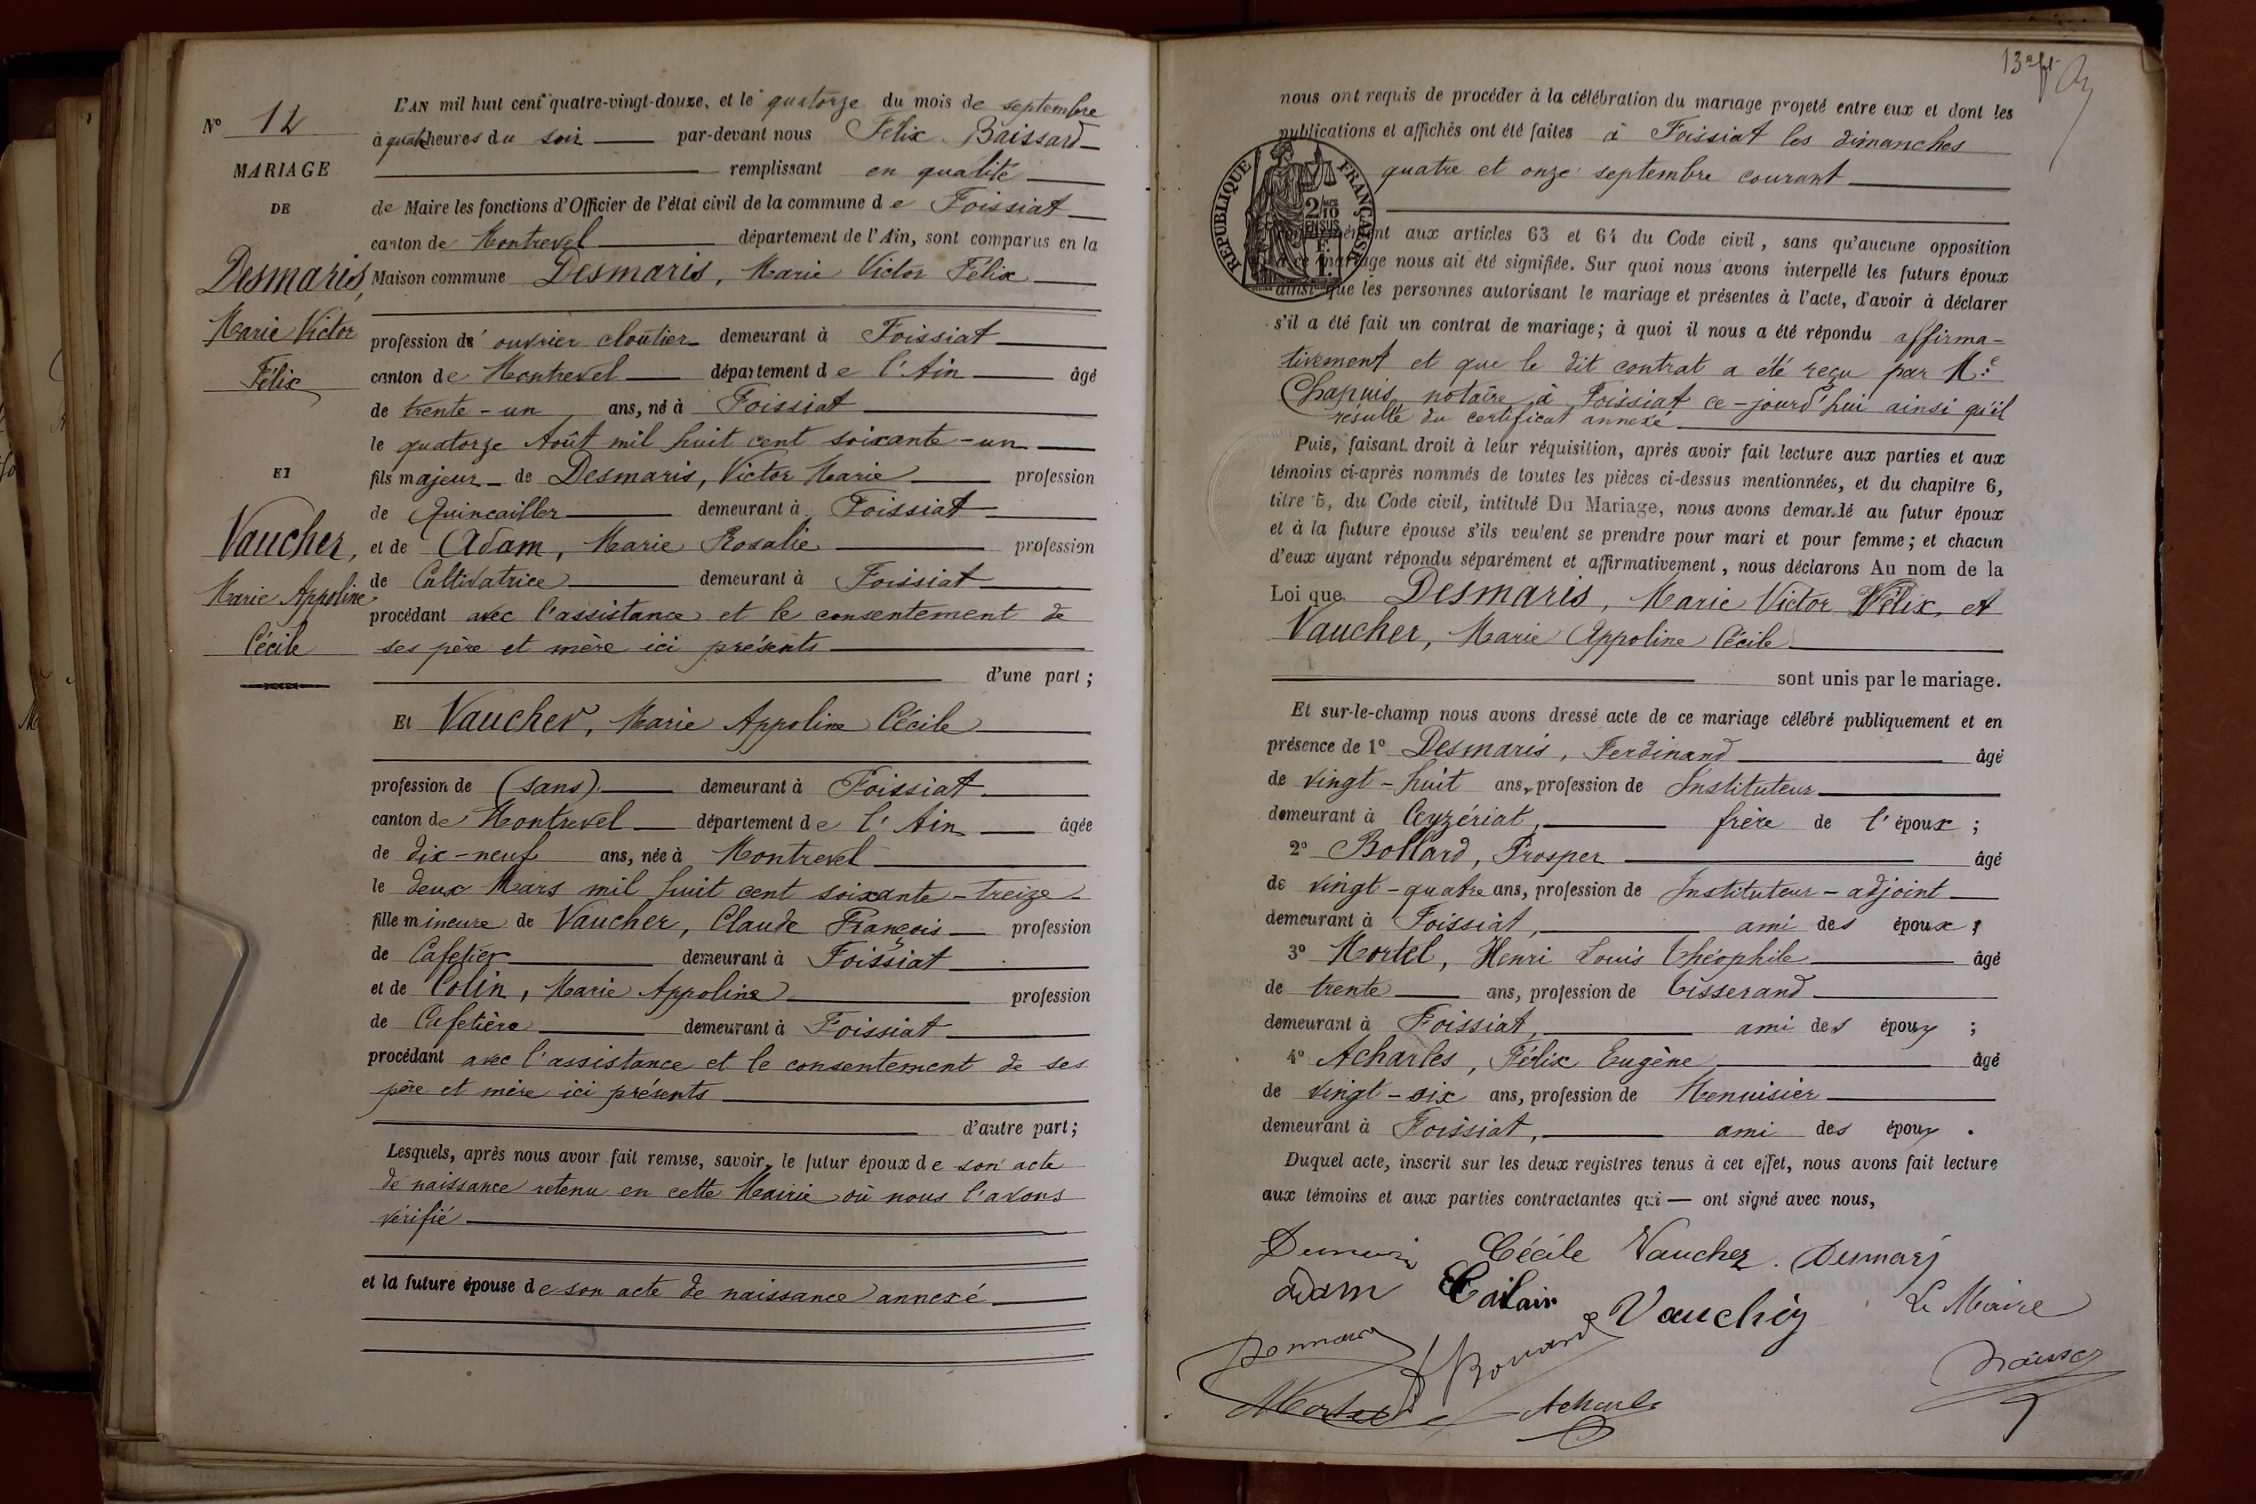 N° 12
MARIAGE
DE
Desmaris,
Marie Victor
Félix
ET
Vaucher,
Marie Appoline
Cécile
L'AN mil huit cent quatre-vingt-douze, et le quatorze du mois de septembre
à quatre heures du soir par-devant nous Félix Baissard
remplissant en qualité
de Maire les fonctions d'Officier de l'état civil de la commune de Foissiat
canton de Montrevel département de l'Ain, sont comparus en la
Maison commune Desmaris, Marie Victor Félix
profession d' ouvrier cloutier demeurant à Foissiat
canton de Montrevel département de l'Ain âgé
de trente-un ans, né à Foissiat
le quatorze Août mil huit cent soixante-un
fils majeur de Desmaris, Victor Marie profession
de Quincailler demeurant à Foissiat
et de Adam, Marie Rosalie profession
de Cultivatrice demeurant à Foissiat
procédant avec l'assistance et le consentement de
ses père et mère ici présents
d'une part;
Et Vaucher, Marie Appoline Cécile
profession de (sans) demeurant à Foissiat
canton de Montrevel département de l'Ain âgée
de dix-neuf ans, née à Montrevel
le deux Mars mil huit cent soixante-treize
fille mineure de Vaucher, Claude François profession
de Cafetier demeurant à Foissiat
et de Colin, Marie Appoline profession
de Cafetière demeurant à Foissiat
procédant avec l'assistance et le consentement de ses
père et mère ici présents
d'autre part;
Lesquels, après nous avoir fait remise, savoir, le futur époux de son acte
de naissance retenu en cette Mairie où nous l'avons
vérifié
et la future épouse de son acte de naissance annexé
13e ft
nous ont requis de procéder à la célébration du mariage projeté entre eux et dont les
publications et affichés ont été faites à Foissiat les dimanches
quatre et onze septembre courant
RÉPUBLIQUE FRANÇAISE
2/10 EN SUS
aux articles 63 et 64 du Code civil, sans qu'aucune opposition
à ce mariage nous ait été signifiée. Sur quoi nous avons interpellé les futurs époux
ainsi que les personnes autorisant le mariage et présentes à l'acte, d'avoir à déclarer
s'il a été fait un contrat de mariage; à quoi il nous a été répondu affirma-
tivement et que le dit contrat a été reçu par Me
Chapuis notaire à Foissiat ce-jourd'hui ainsi qu'il
résulte du certificat annexé.
Puis, faisant droit à leur réquisition, après avoir fait lecture aux parties et aux
témoins ci-après nommés de toutes les pièces ci-dessus mentionnées, et du chapitre 6,
titre 5, du Code civil, intitulé Du Mariage, nous avons demandé au futur époux
et à la future épouse s'ils veulent se prendre pour mari et pour femme; et chacun
d'eux ayant répondu séparément et affirmativement, nous déclarons Au nom de la
Loi que Desmaris, Marie Victor Félix, et
Vaucher, Marie Appoline Cécile
sont unis par le mariage.
Et sur-le-champ nous avons dressé acte de ce mariage célébré publiquement et en
présence de 1° Desmaris, Ferdinand âgé
de vingt-huit ans, profession de Instituteur
demeurant à Ceyzériat, frère de l'époux;
2° Bollard, Prosper âgé
de vingt-quatre ans, profession de Instituteur-adjoint
demeurant à Foissiat, ami des époux;
3° Mortel, Henri Louis Théophile âgé
de trente ans, profession de Tisserand
demeurant à Foissiat, ami des époux;
4° Acharles, Félix Eugène âgé
de vingt-six ans, profession de Menuisier
demeurant à Foissiat, ami des époux.
Duquel acte, inscrit sur les deux registres tenus à cet effet, nous avons fait lecture
aux témoins et aux parties contractantes qui ont signé avec nous,
Cécile Vaucher. Desmaris
adam Vaucher Le Maire